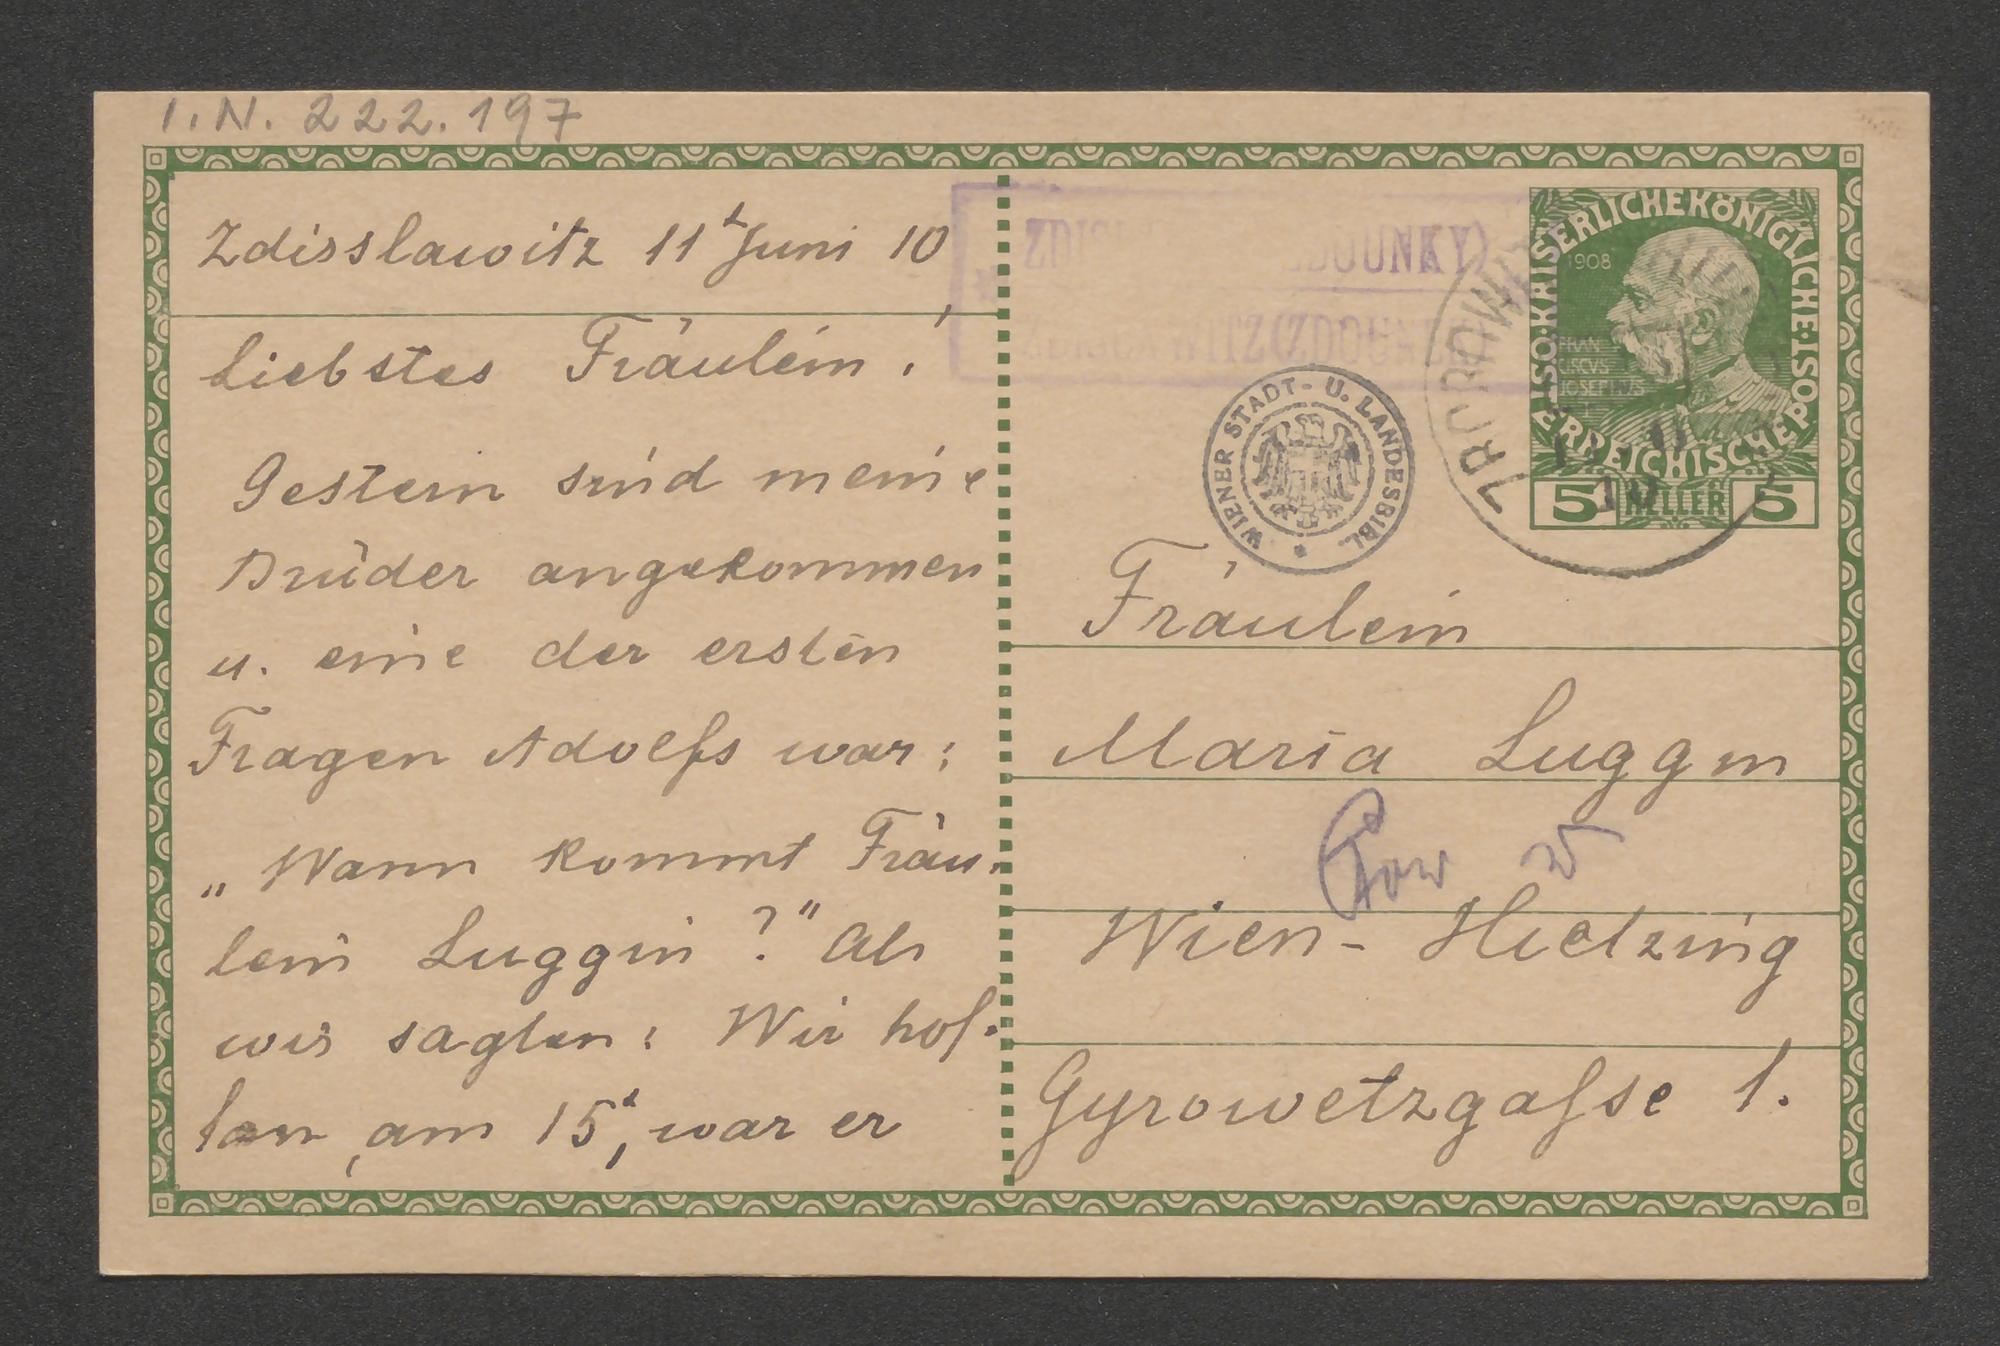 I.N. 222.197
Zdisslawitz 11t Juni 10
Liebstes Fräulein!
Gestern sind meine
Brüder angekommen
u. eine der ersten
Fragen Adolfs war:
„Wann kommt Fräu-
lein Luggin?" Als
wir sagten: Wir hof-
fen, am 15t, war er
ZDOUNKY)
WITZ (ZDOUNEK
WIENER STADT- U. LANDESBIBL.
KAISERLICHE KÖNIGLICHE
ÖSTERREICHISCHE POST
1908
FRAN
CISCVS
IOSEPHVS
I
5 HELLER 5
Fräulein
Maria Luggin
Wien-Hietzing
Gyrowetzgasse 1.